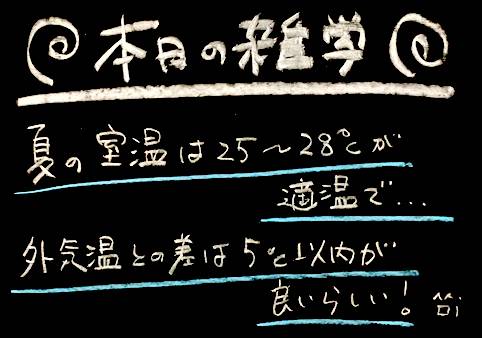 本日の雑学
夏の室温は25〜28℃が
適温で...
外気温との差は5℃以内が
良いらしい!